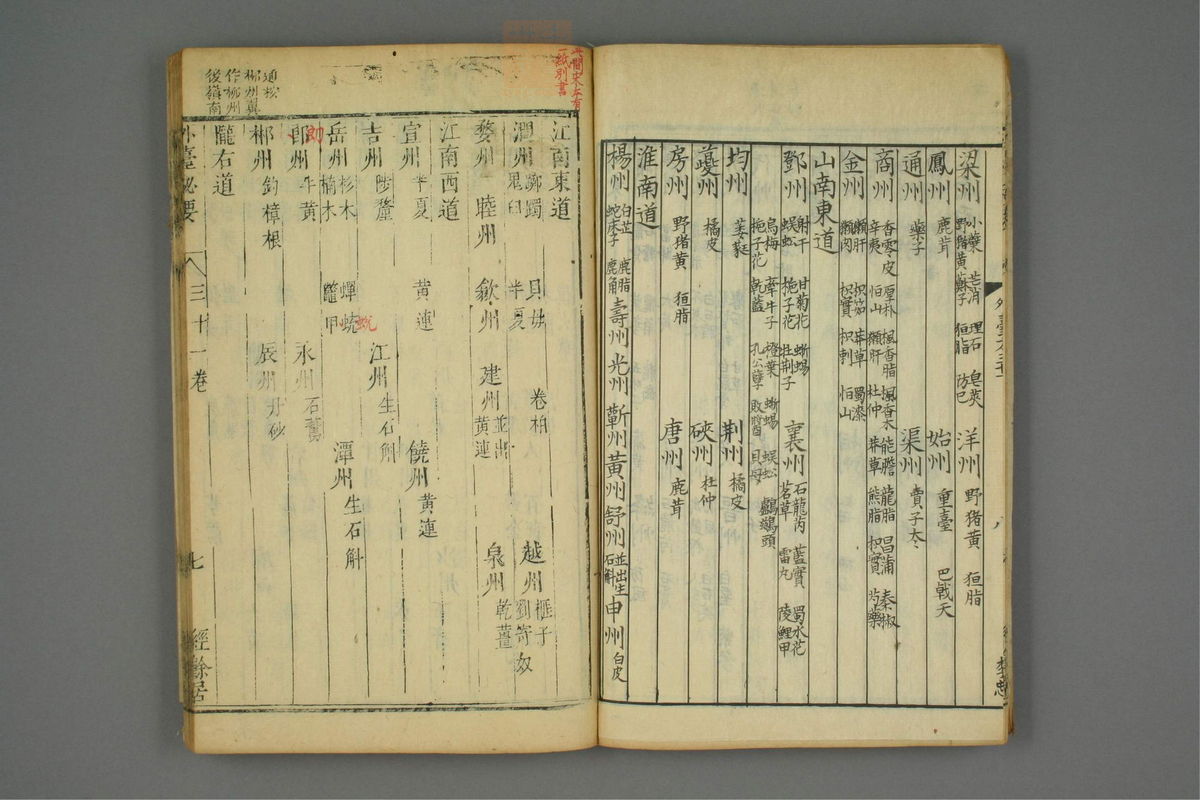 梁州 小蘗 芒消 理石 皂莢 洋州 野猪黃 㹠脂
野猪黃 蘇子 㹠脂 防已
鳳州 鹿茸 始州 重臺 巴戟天
通州 藥子 渠州 賣子木
商州 香零皮 厚朴 楓香脂 楓香木 龍脂 昌蒲 秦椒
辛夷 恒山 獺肝 杜仲 莽草 熊脂 枳實 芍藥
金州 獺肝 枳茹 莽草 蜀漆
獺肉 枳實 枳刺 恒山
山南東道
鄧州 射干 甘菊花 蜥蜴 襄州 石龍芮 藍實 蜀水花
蜈蚣 梔子花 牡荆子 茗草 雷丸 陵鯉甲
烏梅 牽牛子 橙葉 蜥蜴 蜈蚣 鸕鷀頭
梔子花 乾藍 孔公孽 敗醬 貝母
均州 萎蕤 荆州 橘皮
蘷州 橘皮 硤州 杜仲
房州 野猪黃 㹠脂 唐州 鹿茸
淮南道
楊州 白芷 鹿脂 壽州 光州 蘄州 黃州 舒州 並出生 申州 白皮
蛇床子 鹿角 石斛
此間宋本有
一紙別書
江南東道
潤州 躑躅 貝母 卷柏 越州 榧子
鬼臼 半夏 劉寄奴
婺州 睦州 歙州 建州 並出 泉州 乾薑
黃連
江南西道
宣州 半夏 黃連 饒州 黃連
吉州 陟釐 江州 生石斛
岳州 杉木 蟬蛻 蛻 潭州 生石斛
楠木 鼈甲
郎州 郎 牛黃 永州 石鷰
郴州 釣樟根 辰州 丹砂
隴右道
外臺秘要 三十一卷 七 經餘居
通按
郴州冀
作柳州
後嶺南